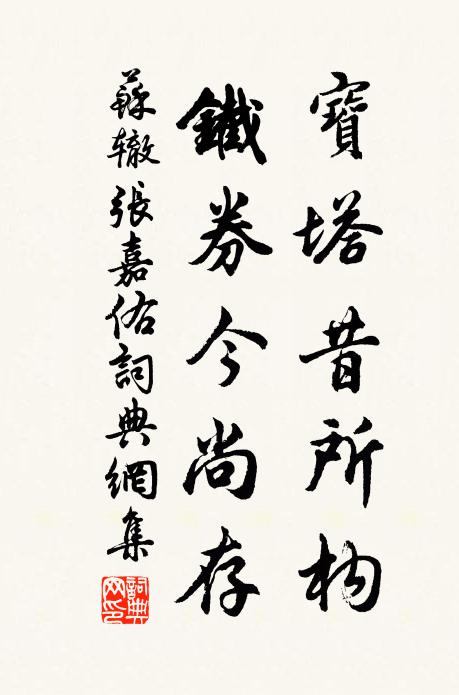 寶塔昔所構
鐵券今尚存
蘇轍張嘉佑詞典網集
詞典網印